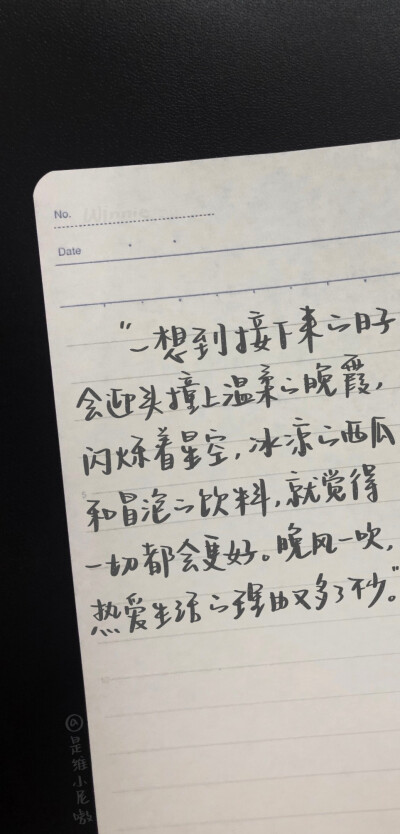 No.
Date
“一想到接下来的日子
会迎头撞上温柔的晚霞，
闪烁着星空，冰凉的西瓜
和冒泡的饮料，就觉得
一切都会更好。晚风一吹，
热爱生活的理由又多了不少。”
@是维小尼